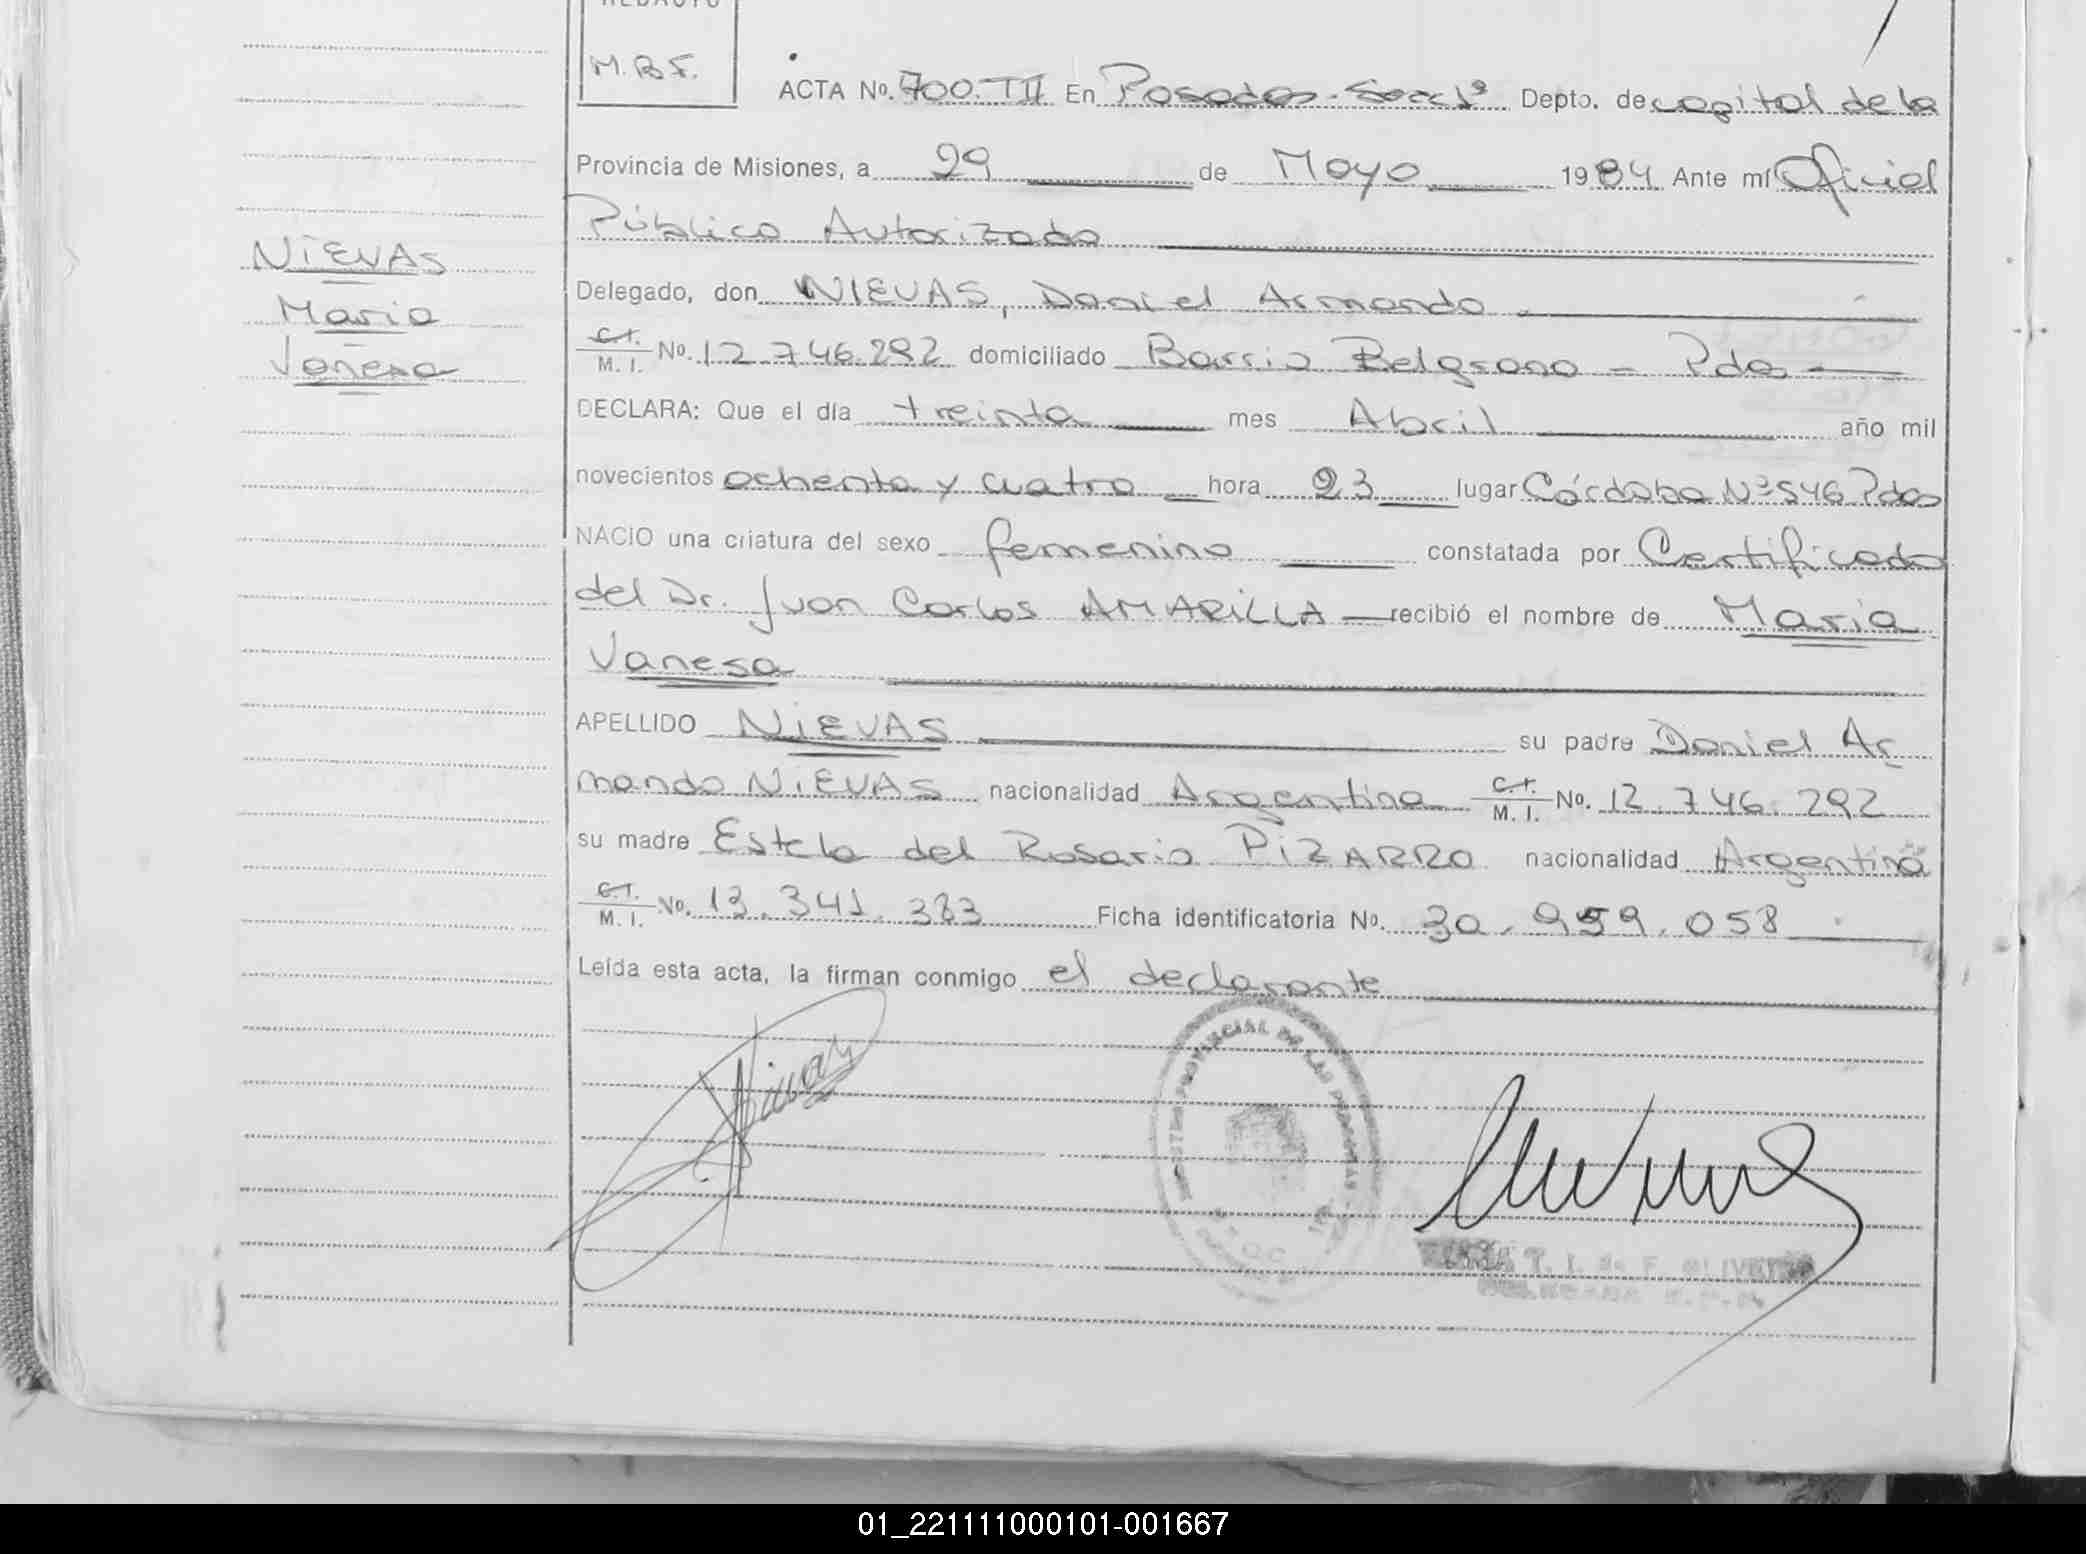 M.B.F.
ACTA No. 700. TII En Posadas - Secc 1ª Depto. de capital de la
Provincia de Misiones, a 29 de Mayo 1984 Ante mí Oficial
Público Autorizado
NiEVAS
Delegado, don NIEVAS, Daniel Armando
Maria
C.I. M. I. No. 12.746.292 domiciliado Barrio Belgrano - Pdas
Vanesa
DECLARA: Que el día treinta mes Abril año mil
novecientos ochenta y cuatro hora 23 lugar Córdoba Nº 546 Pdas
NACIO una criatura del sexo femenino constatada por Certificado
del Dr. Juan Carlos AMARiLLA recibió el nombre de Maria
Vanesa
APELLIDO NiEVAS su padre Daniel Ar
mando NiEVAS nacionalidad Argentina C.I. M. I. No. 12.746.292
su madre Estela del Rosario PiZARRO nacionalidad Argentina
C.I. M. I. No. 13.341.383 Ficha identificatoria No. 30.959.058
Leída esta acta, la firman conmigo el declarante
PROVINCIAL DE LAS PERSONAS
01_221111000101-001667